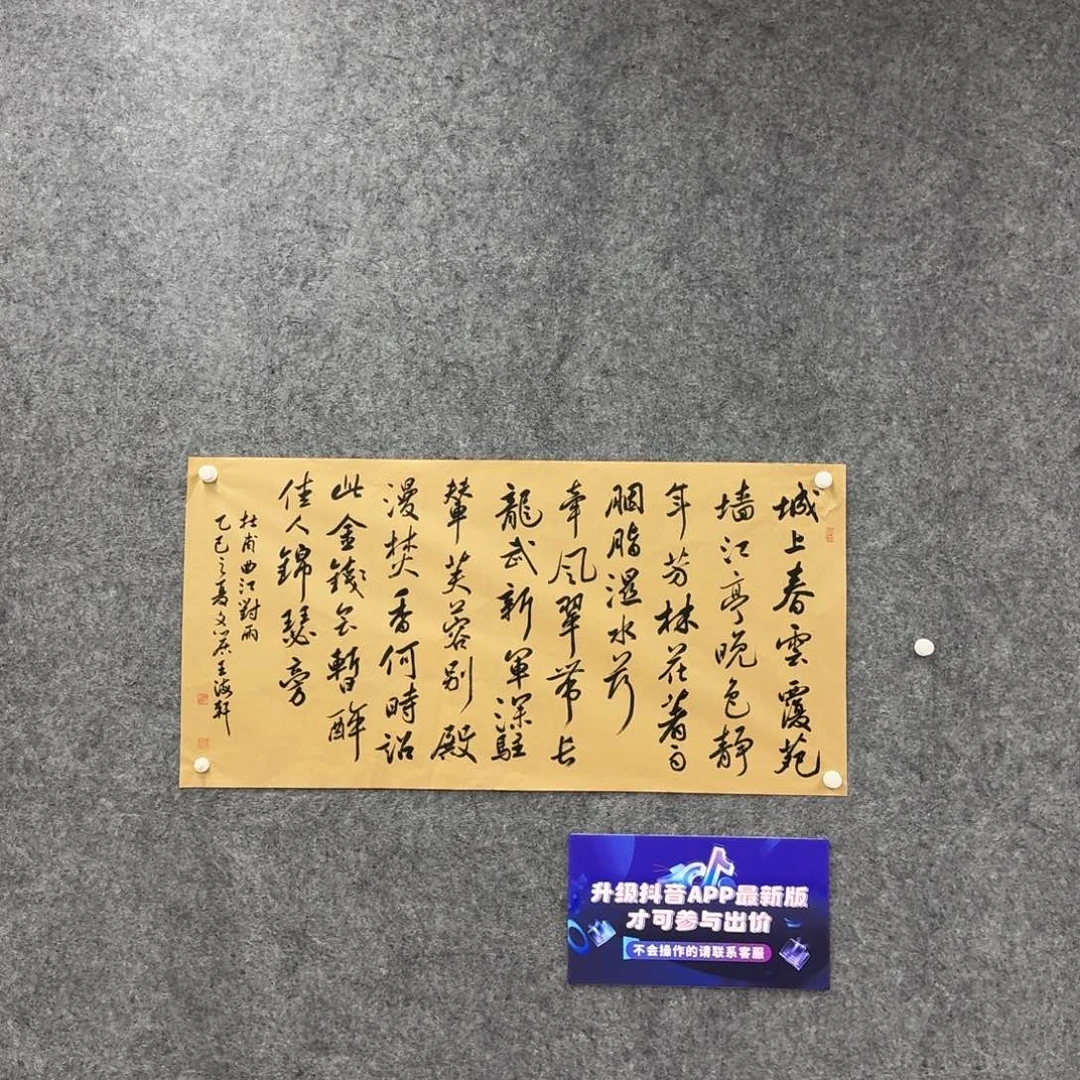 城上春雲覆苑
墙江亭晚色静
年芳林花着雨
胭脂濕水荇
牽風翠帶长
龍武新軍深駐
輦芙蓉别殿
漫焚香何時詔
此金錢会暫醉
佳人錦瑟旁
杜甫曲江對雨
乙巳之夏文王海轩
升级抖音APP最新版
才可参与出价
不会操作的请联系客服